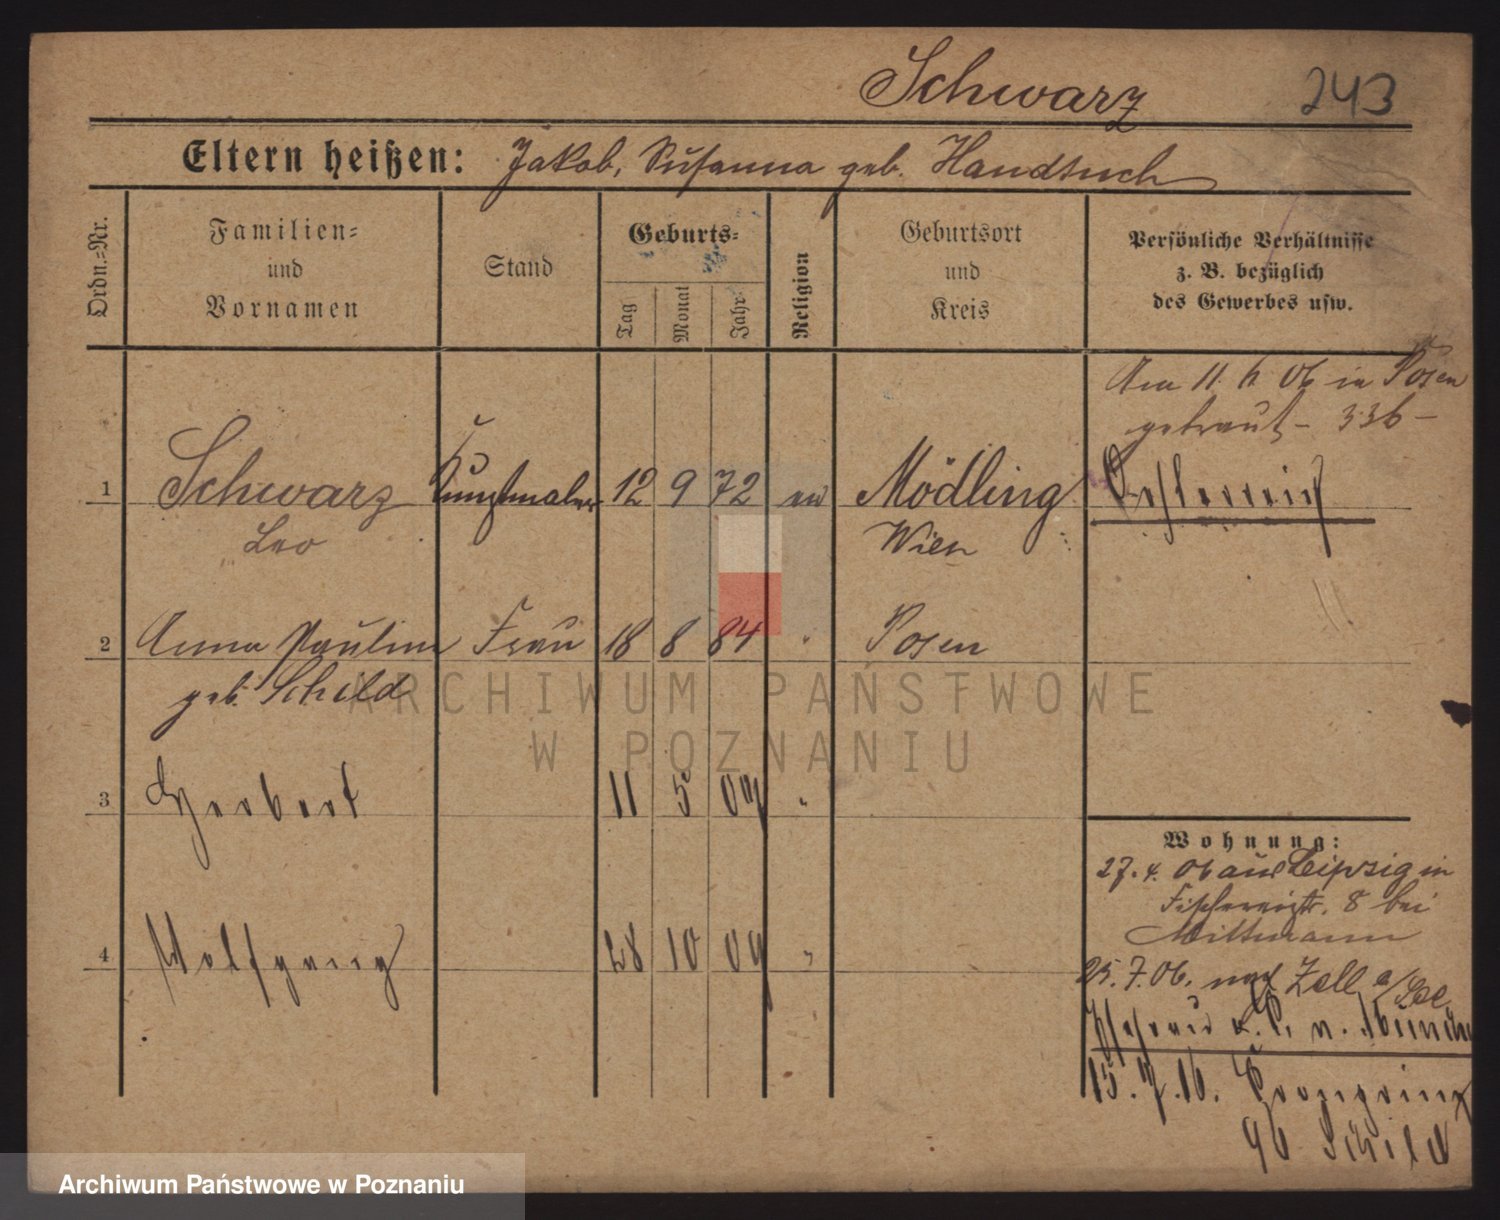 Schwarz 243
Eltern heißen: Jakob, Susanna geb. Handtuch
Ordn.=Nr.
Familien=
und
Vornamen
Stand
Geburts=
Tag
Monat
Jahr:
Religion
Geburtsort
und
Kreis
Persönliche Verhältnisse
z. B. bezüglich
des Gewerbes usw.
Am 11. 6 06 in Posen
getraut – 336 –
1 Schwarz Kunstmaler 12 9 72 ev Mödling Österreich
Leo Wien
2 Anna Pauline Frau 18 8 84 " Posen
geb. Schild
ARCHIWUM PAŃSTWOWE
W POZNANIU
3 Herbert 11 5 09 "
4 Wolfgang 28 10 09 "
Wohnung:
27. 4. 06 aus Leipzig in
Fischereistr. 8 bei
Mittmann
25. 7. 06. nach Zell a/See
15. 7. 16. Kronprinz
96 Schild
Archiwum Państwowe w Poznaniu